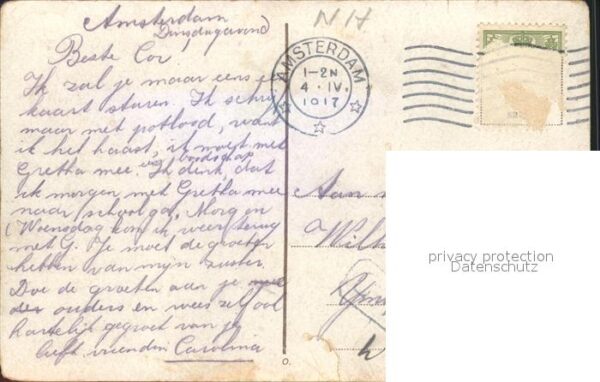 Amsterdam
Dinsdagavond
Beste Cor,
Ik zal je maar eens een
kaart sturen. Ik schrijf
maar met potlood, want
ik het haast, ik moet met
Gretha mee een boodschap
Ik denk, dat
ik morgen met Gretha mee
naar school ga, Morgen
(Woensdag kom ik weer terug
met G. Je moet de groeten
hebben van mijn zuster.
Doe de groeten aan je
ouders en wees zelf ook
hartelijk gegroet van je
liefh vriendin Carolina
NH
AMSTERDAM
1-2N
4.IV.
1917
Aan
Wilh
privacy protection
Datenschutz
o.